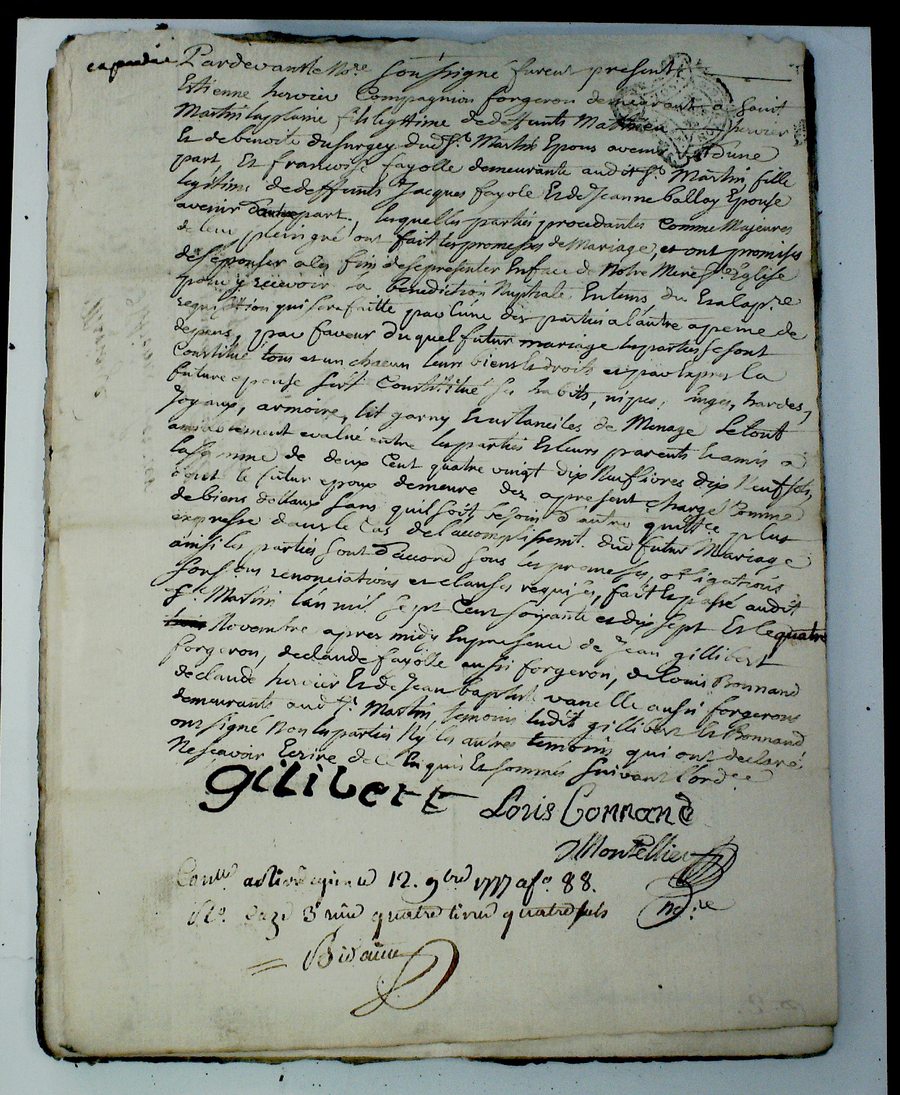 expediée
Pardevant le No.re Soussigné furent presents
Estienne hervier Compagnion forgeron demeurant a Saint
Martin laplaine fils legittime de deffunts Mathieu hervier
Et de benoite dusurgey dud S.t Martin Epoux avenir Dune
part, Et francoise fayolle demeurante audit S.t Martin fille
legitime de deffunts Jacques fayole Et de Jeanne ballay Epouse
avenir Dautre part. lesquelles parties procedantes Comme Majeures
de leur plein gré ont fait les promesses de Mariage, et ont promises
de s'Epouser a les fins de se presenter En face de Notre Mere S.te Eglise
pour y recevoir la benediction Nuptiale En tems du Et a la p.re
requisition qui sera faitte par l'une des parties a l'autre a peine de
depens, par faveur Duquel futur mariage les parties se sont
Constitué tous et un chacun leurs biens & droits et par Exprès la
future epouse s'est Constitué ses habits, nipes, linges, hardes,
Joyaux, armoire, lit garny Et ustanciles de Menage Le tout
amiablement evalué entre les parties Et leurs parents & amis a
la somme de deux Cent quatre vingt dix Neuf livres dix Neuf sols,
dont le futur epoux demeure des apresent Chargé Comme
de biens dottaux sans qu'il soit besoin d'autre quitt.ce plus
expresse dans le Cas de l'accomplissem.t dud futur Mariage
ainsi les parties sont d'accord sous les promesses obligations
soumissions renonciations et clauses requises, fait & passé audit
S.t Martin l'an mil Sept Cent soixante et dix sept Et le quatre
Novembre apres midy En presence de Jean gillibert
forgeron, de claude fayolle aussi forgeron, de Louis Bonnand
de claude hervier Et de Jean baptiste vanelle aussi forgerons
demeurants aud S.t Martin temoins Ledit gillibert Et Bonnand
ont signé Non les parties Ny les autres temoins qui ont declaré
Ne scavoir Ecrire de ce Enquis Et sommés suivant l'ord.ce
gilibert Louis bonnand
Montellier
No.re
Con.lle a 12. 9bre 1777 a fo. 88.
quatre livres quatre sols
Bidaüe